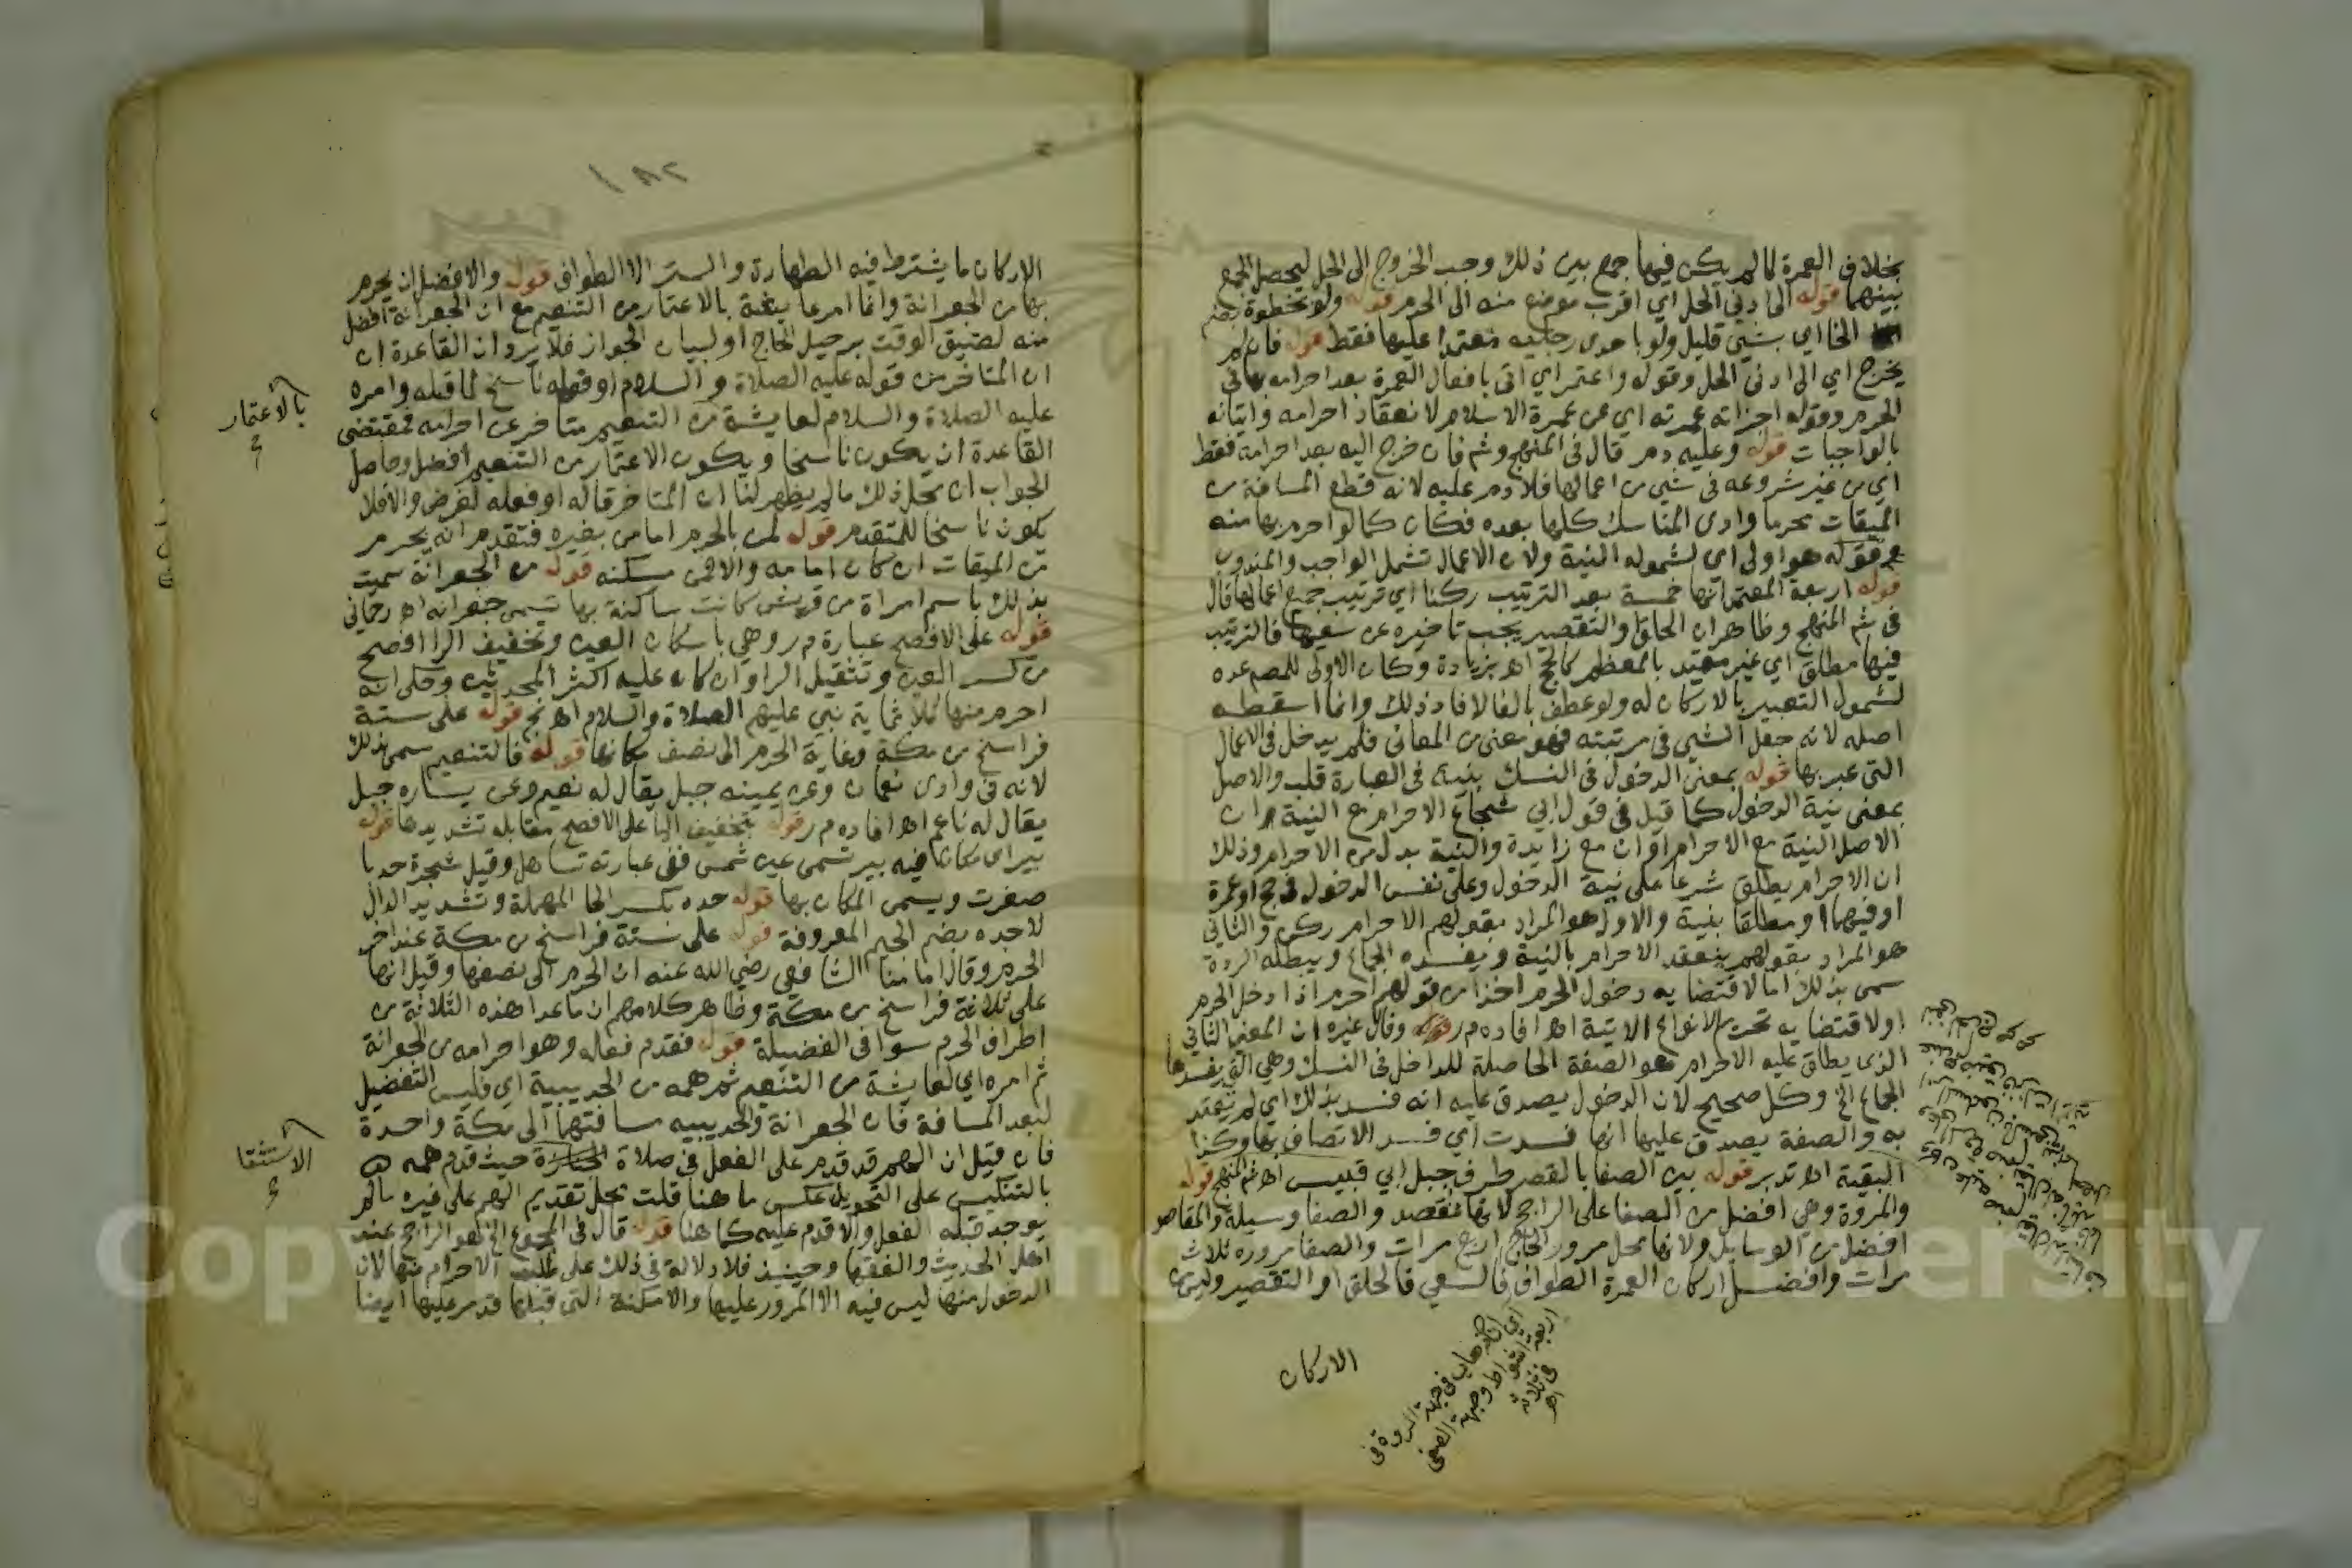 بخلاف العمرة لما لم يكن فيها جمع بين ذلك وجب الخروج الى الحل ليحصل الجمع
بينهما قوله الى ادنى الحل اي اقرب موضع منه الى الحرم قوله ولو بخطوة
الخ اي بشي قليل ولو باحدى رجليه معتمدا عليها فقط قوله فان لم
يخرج اي الى ادنى الحل وقوله واعتمر اي اتى بافعال العمرة بعد احرامه بها في
الحرم وقوله اجزاته عمرته اي عن عمرة الاسلام لانعقاد احرامه واتيانه
بالواجبات قوله وعليه دم قال في المنهج وشم فان خرج اليه بعد احرامه فقط
اي من غير شروعه في شي من اعمالها فلا دم عليه لانه قطع المسافة من
الميقات محرما وادى المناسك كلها بعده فكان كما لو احرم بها منه
قوله هو اولى اي لشموله النية ولان الاعمال تشمل الواجب والمندوب
قوله اربعة المعتمد انها خمسة بعد الترتيب ركنا اي ترتيب جميع اعمالها قال
في شم المنهج وظاهر ان الحلق والتقصير يجب تاخيره عن سعيها فالترتيب
فيها مطلق اي غير مقيد بالمعظم كالحج اهـ بزيادة وكان الاولى للمصم عده
لشمول التعبير بالاركان له ولو عطف بالفا لافاد ذلك وانما اسقطه
اصله لانه جعل الشي في مرتبته فهو معنى من المعاني فلم يدخل في الاعمال
التي عبر بها قوله بمعنى الدخول في النسك بنية في العبارة قلب والاصل
بمعنى نية الدخول كما قيل في قول ابي شجاع الاحرام مع النية ان
الاصل النية مع الاحرام او ان مع زايدة والنية بدل من الاحرام وذلك
ان الاحرام يطلق شرعا على نية الدخول وعلى نفس الدخول في حج او عمرة
او فيهما او مطلقا بنية والاول هو المراد بقولهم الاحرام ركن والثاني
هو المراد بقولهم ينعقد الاحرام بالنية ويفسده الجماع ويبطله الردة
سمى بذلك اما لاقتضايه دخول الحرم اخذا من قولهم احرم اذا دخل الحرم
او لاقتضايه تحريم الانواع الاتية اهـ افاده م ر وقال غيره ان المعنى الثاني
الذي يطلق عليه الاحرام هو الصفة الحاصلة للداخل في النسك وهي التي يفسدها
الجماع الخ وكل صحيح لان الدخول يصدق عليه انه فسد بذلك اي لم يعتد
به والصفة يصدق عليها انها فسدت اي فسد الاتصاف بها وكذا
البقية اهـ تدبر قوله بين الصفا بالقصر طرف جبل ابي قبيس اهـ شم المنهج قوله
والمروة وهي افضل من الصفا على الراجح لانها مقصد والصفا وسيلة والمقاصد
افضل من الوسايل ولانها محل مرور الحاج اربع مرات والصفا مروره ثلاث
مرات وافضل اركان العمرة الطواف فالسعي فالحلق او التقصير وليس من
الاركان
اربعة اشواط وجهة الصفى
في ثلاثة
اهـ
الاركان ما يشترط فيه الطهارة والستر الا الطواف قوله والافضل ان يحرم
بها من الجعرانة وانما امر عايشة بالاعتمار من التنعيم مع ان الجعرانة افضل
منه لضيق الوقت برحيل الحاج او لبيان الجواز فلا يرد ان القاعدة ان
ان المتاخر من قوله عليه الصلاة والسلام او فعله ناسخ لما قبله وامره
بالاعتمار
عليه الصلاة والسلام لعايشة من التنعيم متاخر عن احرامه فمقتضى
القاعدة ان يكون ناسخا ويكون الاعتمار من التنعيم افضل وحاصل
الجواب ان محل ذلك ما لم يظهر لنا ان المتاخر قاله او فعله لغرض والا فلا
يكون ناسخا للمتقدم قوله لمن بالحرم اما من بغيره فتقدم انه يحرم
من الميقات ان كان امامه والا فمن مسكنه قوله من الجعرانة سميت
بذلك باسم امراة من قريش كانت ساكنة بها تسمى جعرانة اهـ رحماني
قوله على الافصح عبارة م ر وهي باسكان العين وتخفيف الرا افصح
من كسر العين وتثقيل الرا وان كان عليه اكثر المحدثين وحكى انه
احرم منها ثلاثماية نبي عليهم الصلاة والسلام اهـ قوله على ستة
فراسخ من مكة وغاية الحرم الى نصف مكانها قوله فالتنعيم سمى بذلك
لانه في وادى نعمان وعن يمينه جبل يقال له نعيم وعن يساره جبل
يقال له ناعم اهـ افاده م ر قوله بتخفيف اليا على الافصح مقابله تشديدها قوله
بير اي مكانها فيه بير تسمى عين شمس ففي عبارته تساهل وقيل شجرة حدبا
صغرت ويسمى المكان بها قوله حده بكسر الحا المهملة وتشديد الدال
لا جده بضم الجيم المعروفة قوله على ستة فراسخ من مكة عند اخر
الحرم وقال امامنا الشافعي رضي الله عنه ان الحرم الى نصفها وقيل انها
على ثلاثة فراسخ من مكة وظاهر كلامهم ان ما عدا هذه الثلاثة من
اطراف الحرم سوا في الفضيلة قوله فقدم فعله وهو احرامه من الجعرانة
ثم امره اي لعايشة من التنعيم ثم همه من الحديبية اي فليس التفضيل
لبعد المسافة فان الجعرانة والحديبيه مسافتهما الى مكة واحدة
فان قيل ان الهم قد قدم على الفعل في صلاة حيث قدم همه
الاستسقا
بالتنكيس على التحويل عكس ما هنا قلت محل تقديم الهم على غيره ما لم
يوجد قبله الفعل والا قدم عليه كما هنا قوله قال في المجموع انه هو الراجح عند
اهل الحديث والفقها وحينيذ فلا دلالة في ذلك على طلب الاحرام منها لان
الدخول منها ليس فيه الا المرور عليها والامكنة التي قبلها قد مر عليها ايضا